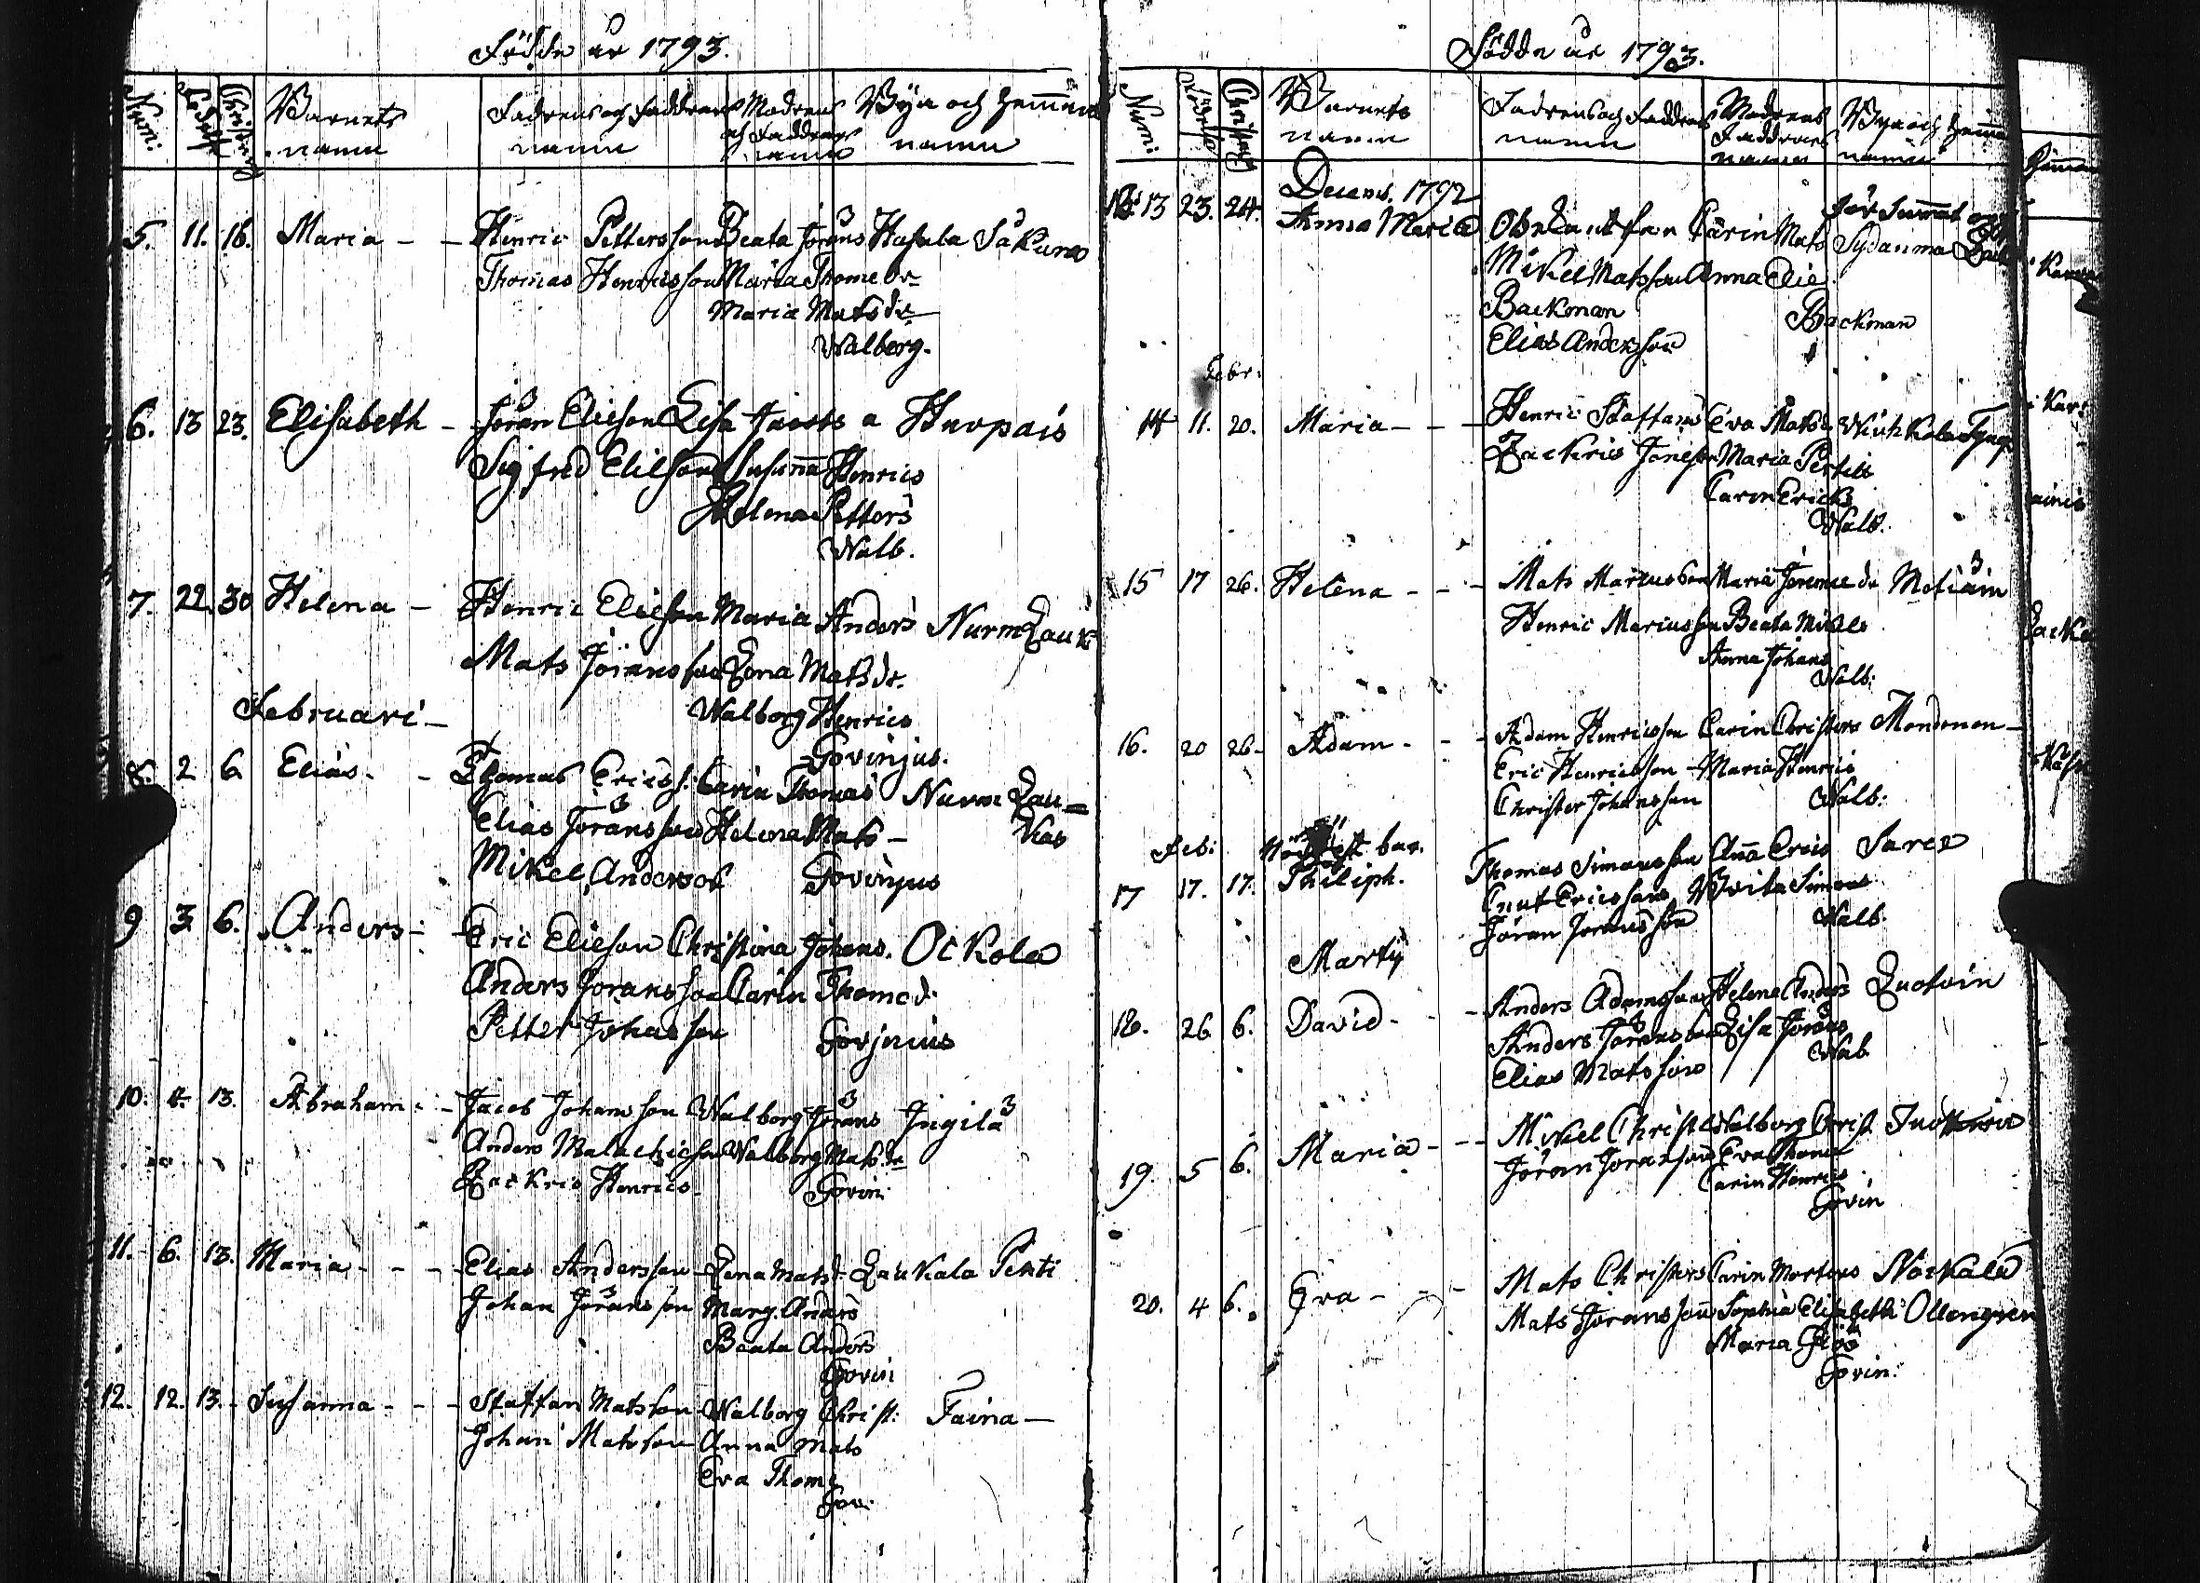 Födde år 1793.
Num: Födelse Christning Barnets namn Fadrens och Faddrars namn Modrens och Faddrars namn Byn och Hemmans namn
5. 11. 16. Maria - - Henric Pettersson Beata Jörans Hapala Säkura
Thomas Henricsson Maria Thome dr
Maria Mats dr
Walberg.
6. 13 23. Elisabeth - Jöran Eliesson Lisa Jacobs a Hurpais
Sigfred Elieson Susanna Henrics
Helena Petters
Walb.
7. 22. 30 Helena - Henric Elieson Maria Anders Nurm Lauk
Mats Jöransson Lena Mats dr.
Walborg Henrics
Govinjus.
Februari -
8. 2 6 Elias - - Thomas Ericss: Carin Thomas Nurm Lau=
Elias Jöransson Helena Mats - kas
Mikel Anders Govinjus
9 3. 6. Anders - Eric Elieson Christina Johans. Ockola
Anders Joransson Carin Thome d.
Petter Johansson Govjnius
10. 8. 13. Abraham - - Jacob Johansson Walborg Jörans Ingilä
Anders Malachieson Walborg Mats dr
Zackris Henrics Govin
11. 6. 13. Maria - - - Elias Andersson Lena Mats d Laukala Penti
Johan Jöransson Marg. Anders
Beata Anders
Govin
12. 12. 13. - Susanna - - - Staffan Matsson Walborg Christ: Taina -
Johan Matsson Anna Mats
Eva Thome
Gov.
Födde år 1793.
Num: Födelse Christning Barnets namn Fadrens och Faddrars namn Modrens Faddrars namn Byn och Hemmans namn
Decemb. 1792
13 23. 24. Anna Maria Carin Mats Sydänma
Mikel Matsson Anna Elie
Backman Backman
Elias Andersson
Febr:
14 11. 20. Maria - - - Henric Staffans Eva Mats
Zackris Jönsson Maria Pertils
Carin Erics
Walb.
15 17 26. Helena - - - Mats Marcusson Maria Jereme dr Metiäin
Henric Marcusson Beata Mikels
Anna Johans
Walb:
16. 20 26 - Adam - - - Adam Henricsson Carin Christers Mondonen -
Eric Henricsson Maria Henrics
Christer Johansson Walb:
Feb: Nöddöpt bar.
17 17. 17. Philiph. Thomas Simonsson Anna Erics Sares
Cnut Ericsson Brita Simons
Jöran Joransson Walb.
Martij
18. 26 6. David - - - Anders Adamsson Helena Anders Luotoin
Anders Jöransson Lisa Jörans
Elias Matsson Wab
19. 5 6. Maria - - - Mikel Christ Walborg Christ.
Jöran Joransson Eva Thome
Carin Henrics
Govin
20. 4 6. Eva - - - Mats Christers Carin Mortens Nockala
Mats Joransson Sophia Elisabeth Ollengren
Maria
Govin.